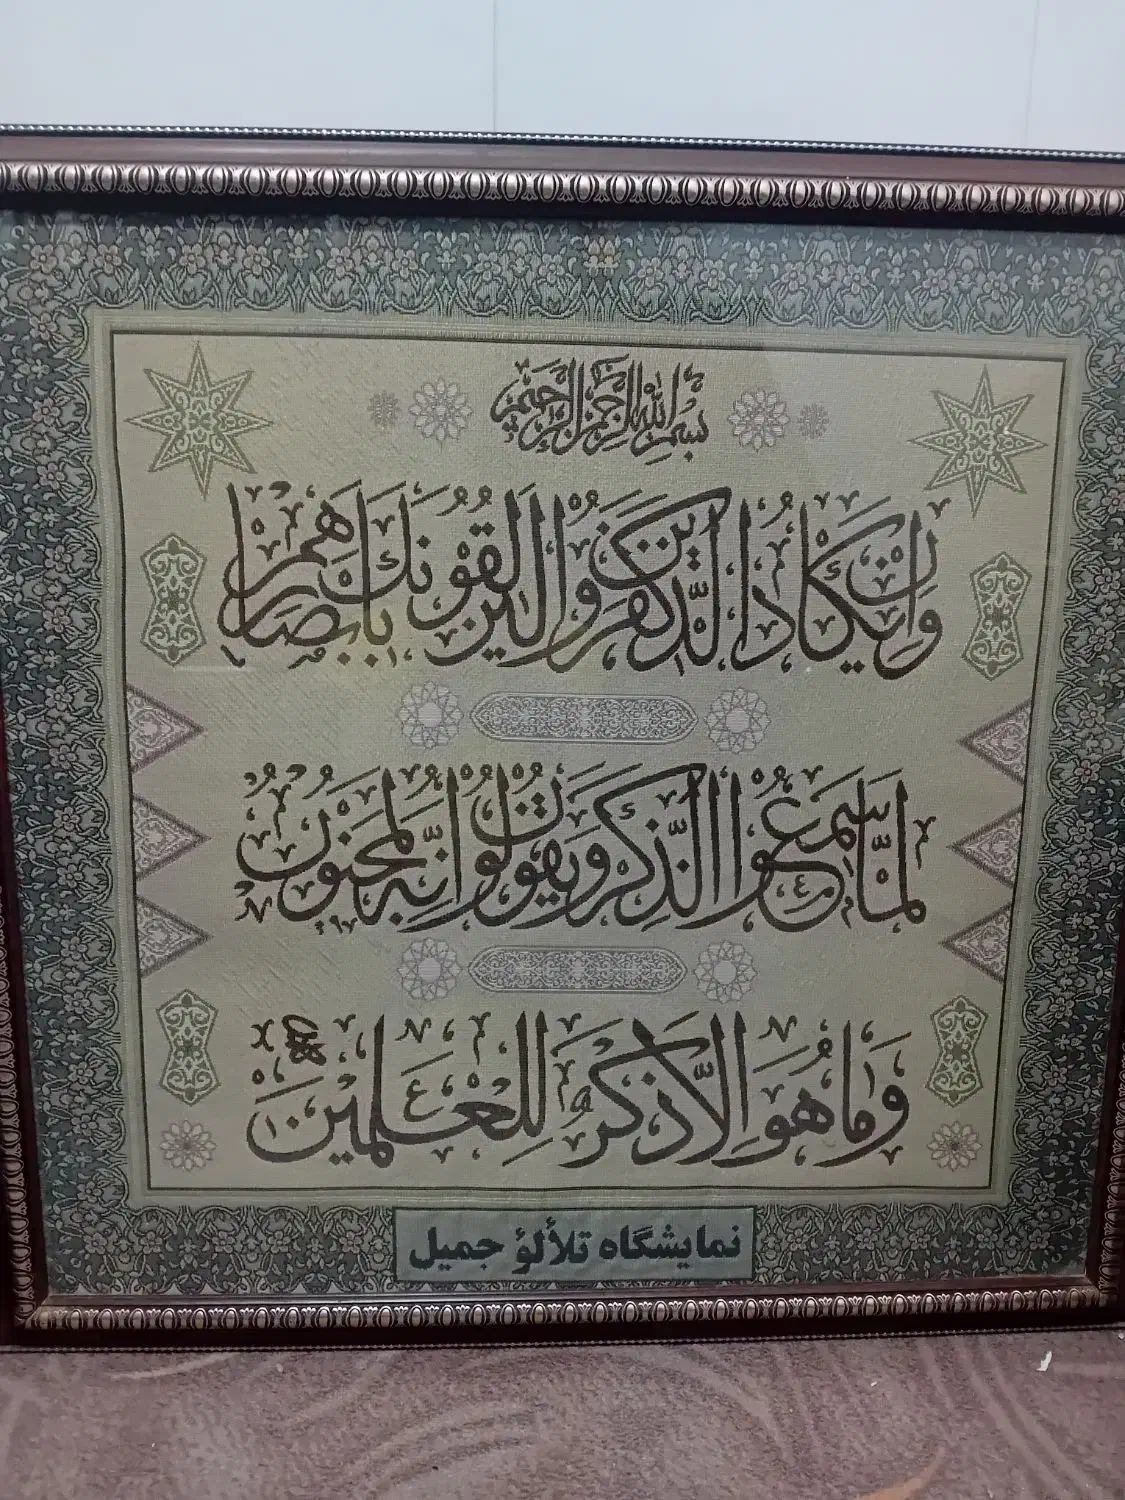 بِسْمِ اللهِ الرَّحْمٰنِ الرَّحِيمِ
وَاِنْ يَكَادُ الَّذينَ كَفَرُوا لَيُزْلِقُونَكَ بِاَبْصَارِهِمْ
لَمَّا سَمِعُوا الذِّكْرَ وَيَقُولُونَ اِنَّهُ لَمَجْنُونٌ
وَمَا هُوَ اِلَّا ذِكْرٌ لِلْعٰلَمينَ
نمایشگاه تلألؤ جمیل